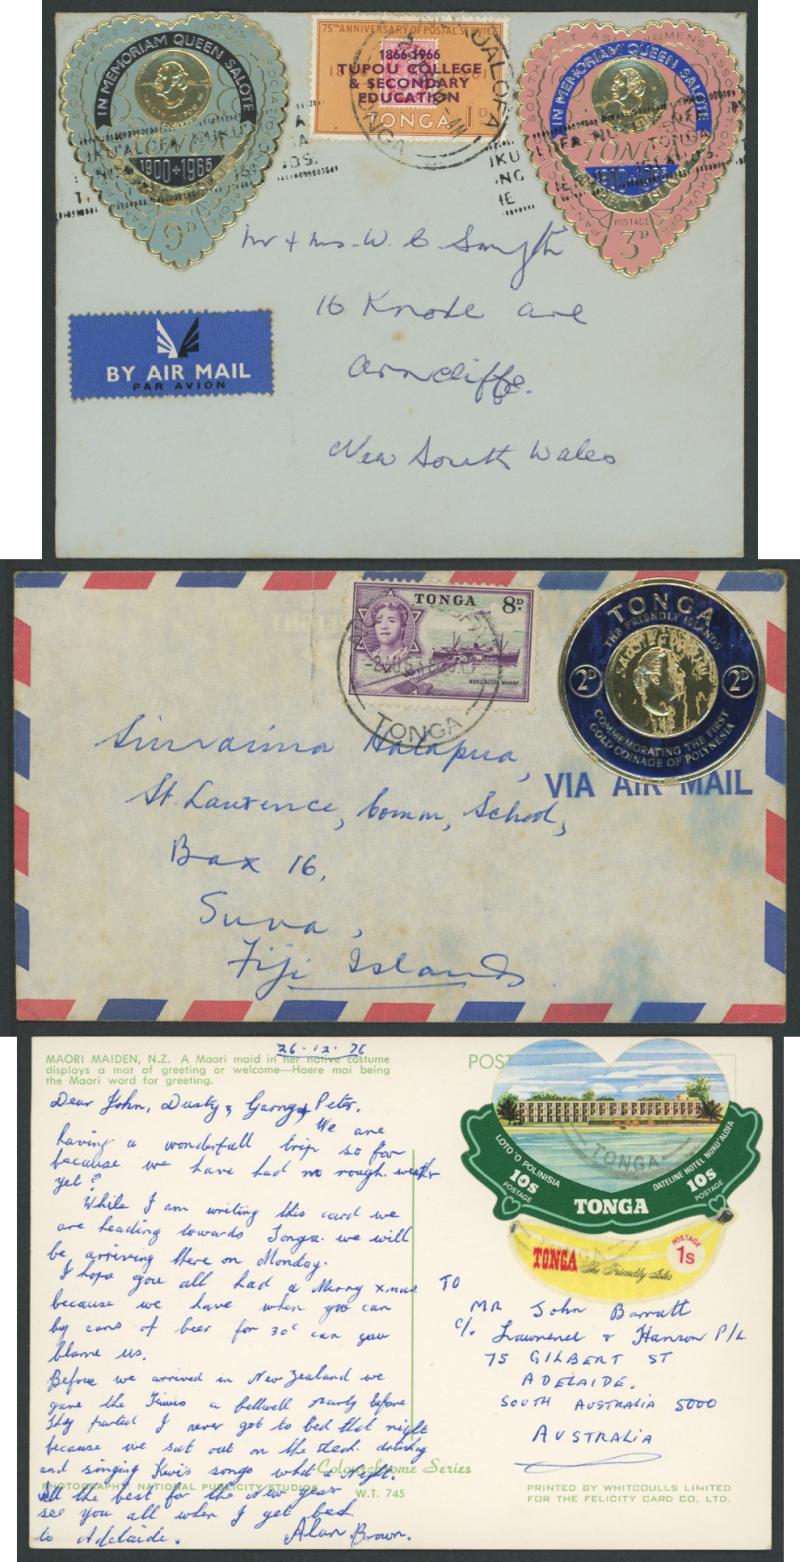 IN MEMORIAM QUEEN SALOTE
1900 + 1965
9D
75TH ANNIVERSARY OF POSTAL SERVICE
1866-1966
TUPOU COLLEGE
& SECONDARY
EDUCATION
TONGA 1D
IN MEMORIAM QUEEN SALOTE
TONGA
1900 + 1965
POSTAGE
3D
Mr + Mrs. W. C Smyth
16 Knode ave
Arncliffe.
New South Wales
BY AIR MAIL
PAR AVION
TONGA 8D
NUKUALOFA WHARF
TONGA
TONGA
THE FRIENDLY ISLANDS
2D 2D
COMMEMORATING THE FIRST
GOLD COINAGE OF POLYNESIA
VIA AIR MAIL
Halapua,
St. Laurence, Comm, School,
Bax 16,
Suva,
Fiji Islands
26.12.76
MAORI MAIDEN, N.Z. A Maori maid in her native costume
displays a mat of greeting or welcome—Haere mai being
the Maori word for greeting.
POST
Dear John, Dusty, Peter.
We are
having a wonderfull trip so far
because we have had no rough
yet?
While I am writing this card we
are heading towards Tonga. we will
be arriving there on Monday.
I hope you all had a Merry xmas
because we have when you can
by cans of beer for 30c can you
blame us.
Before we arrived in New Zealand we
gave the Kiwis a party before
they parted I never got to bed that night
because we sat out on the deck
and singing Kiwis songs what a Night.
All the best for the New Year
see you all when I get back
to Adelaide. Alan Brown.
Colourchrome Series
PHOTOGRAPHY NATIONAL PUBLICITY STUDIOS
W.T. 745
LOTO 'O POLINISIA
DATELINE HOTEL NUKU'ALOFA
10s POSTAGE
10s POSTAGE
TONGA
TONGA
TONGA The Friendly Isles
POSTAGE 1s
TO
MR John Barratt
c/. & Hanson P/L
75 GILBERT ST
ADELAIDE.
SOUTH AUSTRALIA 5000
AUSTRALIA
PRINTED BY WHITCOULLS LIMITED
FOR THE FELICITY CARD CO. LTD.